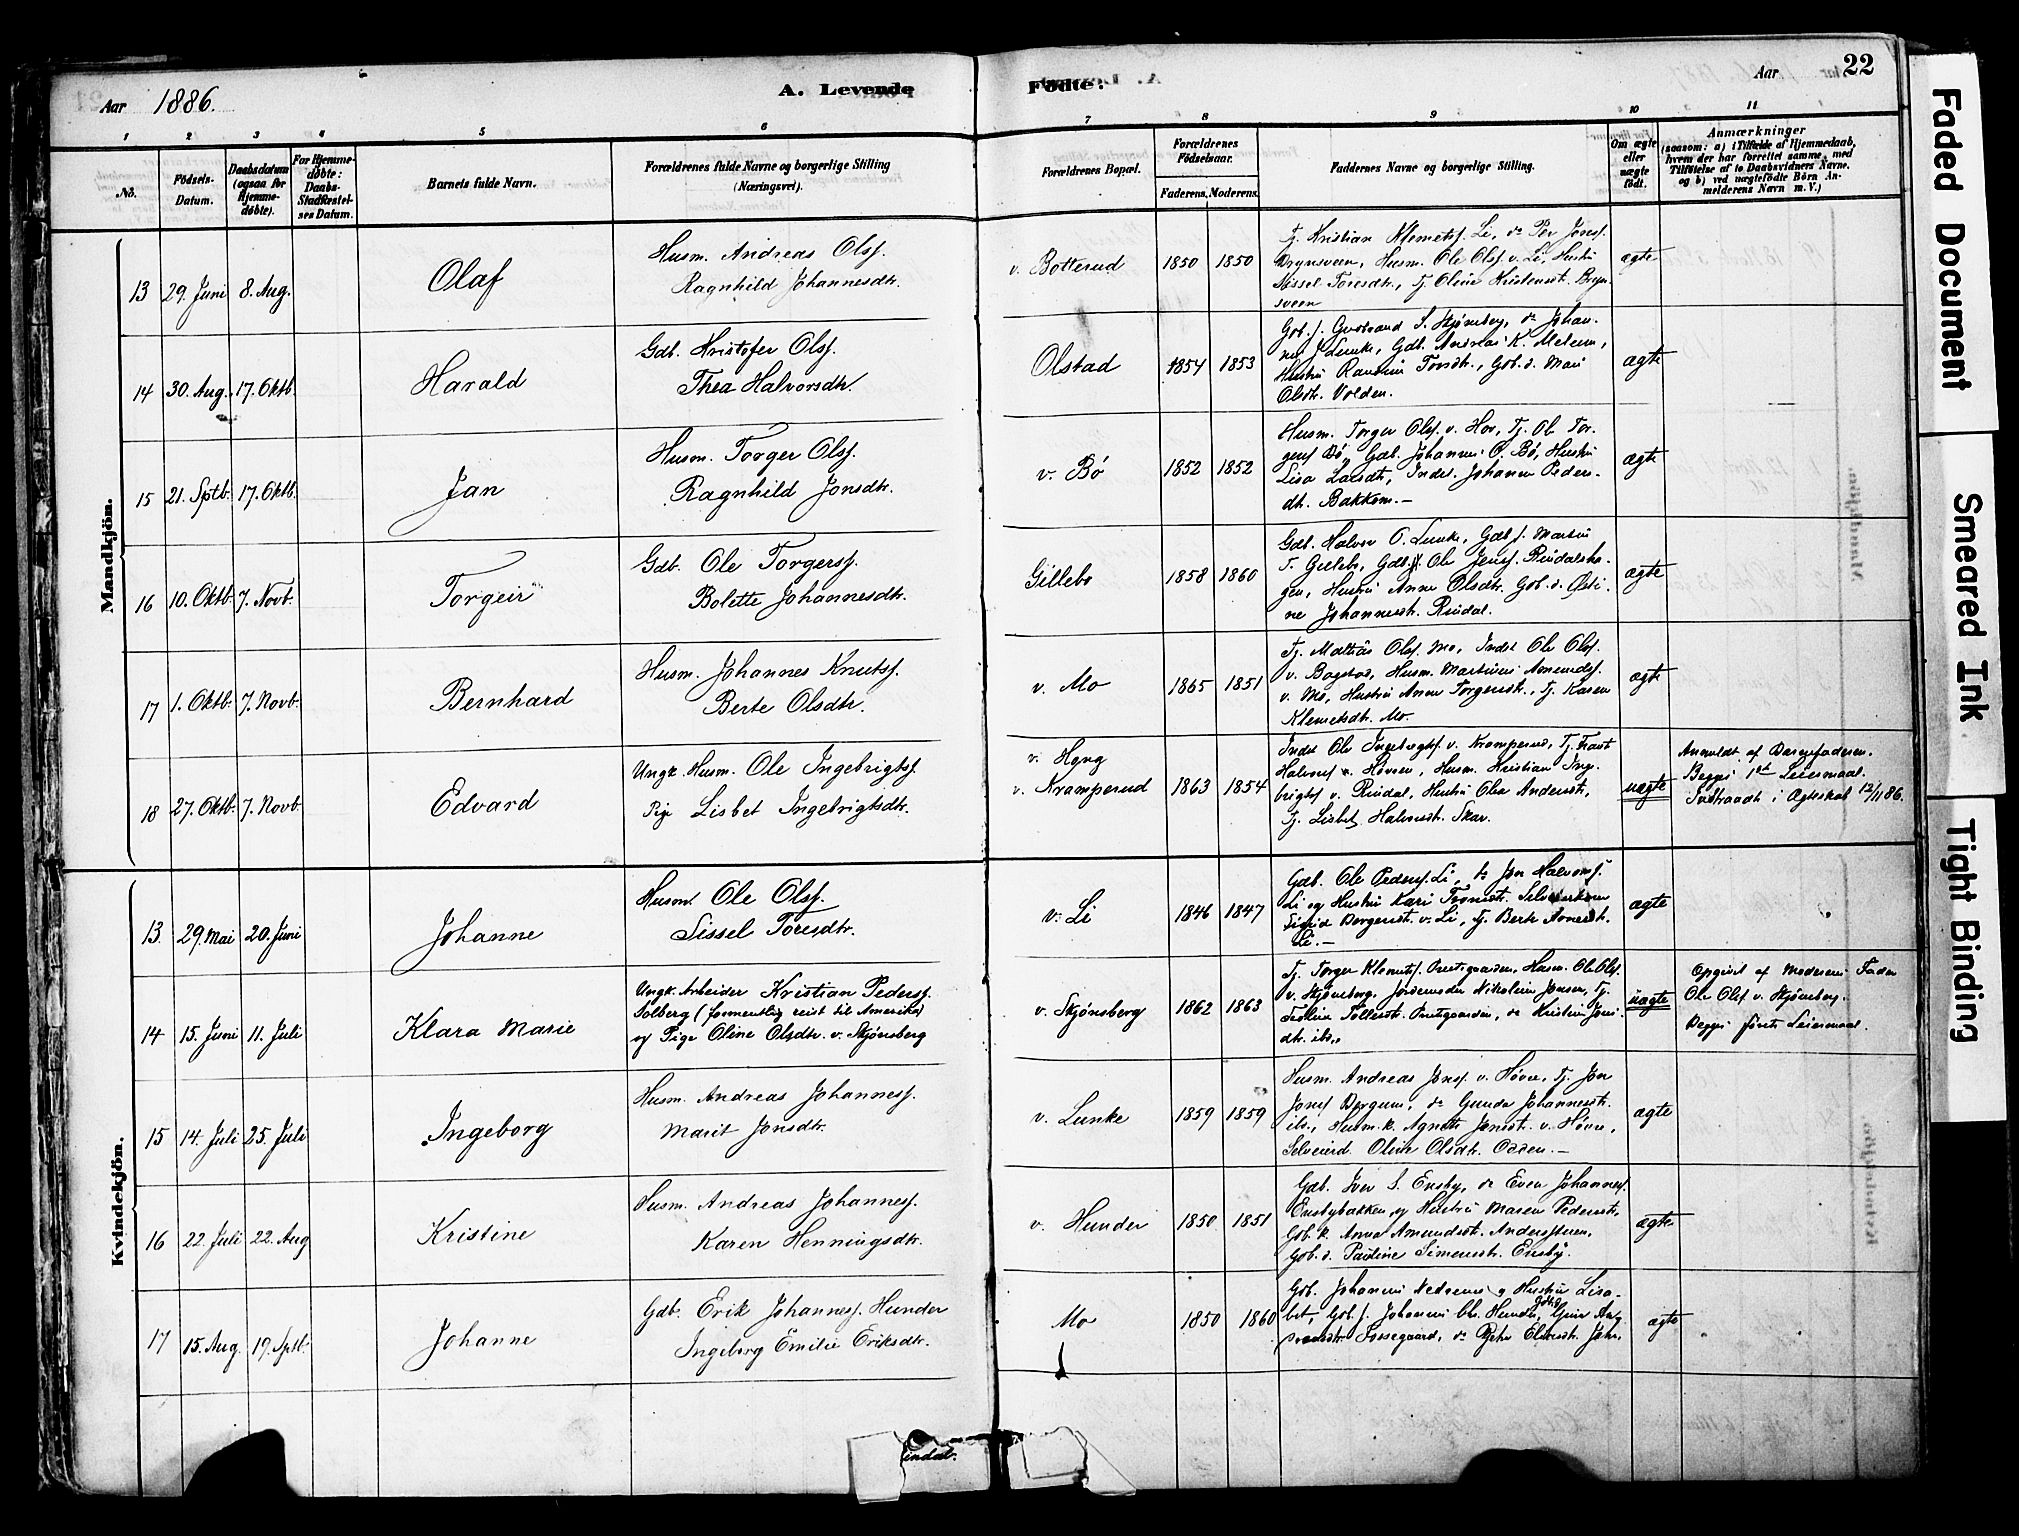 Aar 1886.
A. Levende
Fødte.
Aar
22
1
2
3
4
5
6
7
8
9
10
11
No.
Fødsels-
Datum.
Daabsdatum
(ogsaa for
Hjemme-
døbte).
For Hjemme-
døbte:
Daabs-
Stadfæstel-
ses Datum.
Barnets fulde Navn.
Forældrenes fulde Navne og borgerlige Stilling
(Næringsvei).
Forældrenes Bopæl.
Forældrenes
Fødselsaar.
Faderens. Moderens.
Faddernes Navne og borgerlige Stilling.
Om ægte
eller
uægte
født.
Anmærkninger
(saasom: a) i Tilfælde af Hjemmedaab,
hvem der har forrettet samme, med
Tilføielse af to Daabsvidners Navne,
og b) ved uægtefødte Børn An-
melderens Navn m. V.)
Mandkjön.
13 29. Juni 8. Aug.
Olaf
Husm. Andreas Olsf.
Ragnhild Johannesdtr.
v. Botterud
1850 1850
Tj. Kristian Klemetsf. Li, do Per Jonsf.
Brynsveen, Husm. Ole Olsf. v. Li, Hustru
Sissel Toresdtr., Tj. Oline Kristensdt. Bryn-
sveen
ægte
14 30. Aug. 17. Oktb.
Harald
Gdb. Kristofer Olsf.
Thea Halvorsdtr.
Olstad
1854 1853
Gbs. f. Gudbrand S. Skjønsberg, do Johan-
nes J. Lunke, Gdb. Andreas K. Melum,
Hustru Randine Tordtr., Gbs. d. Mari
Olsdtr. Volden.
ægte
15 21. Sptb. 17. Oktb.
Jan
Husm. Torger Olsf.
Ragnhild Jonsdtr.
v. Bö
1852 1852
Husm. Torger Olsf. v. Hov, Tj. Ole Tor-
gersf. Bö, Gdb. Johannes O. Bö, Hustru
Lisa Larsdt., Inds. Johanne Peders-
dtr. Bakkom.—
ægte
16 10. Oktb. 7. Novb.
Torgeir
Gdb. Ole Torgersf.
Bolette Johannesdtr.
Gillebo
1858 1860
Gdb. Halvor O. Lunke, Gdb. f. Martin
T. Gillebo, Gdb. Ole Jensf. Rindalsha-
gen, Hustru Anne Olsdtr. Gbs. d. Østi-
ne Johannesdt. Rindal.
ægte
17 1. Oktb. 7. Novb.
Bernhard
Husm. Johannes Knutsf.
Berte Olsdtr.
v. Mo
1865 1851
Tj. Mathias Olsf. Mo, Inds. Ole Olsf.
v. Bagstad, Husm. Martinus Amundsf.
v. Mo, Hustru Anne Torgersdt., Tj. Karen
Klemetsdtr. Mo.
ægte
18 27. Oktb. 7. Novb.
Edvard
Ungk. Husm. Ole Ingebrigtsf.
Pige Lisbet Ingebrigtsdtr.
v.
v. Kramperud
1863 1854
Inds. Ole Ingebrigtsf. v. Kramperud, Tj.
Halvorsf. v. Høvren, Husm. Kristian Inge-
brigtsf. v. Rindal, Hustru Olea Andersdt.,
Tj. Lisbet Halvorsdt. Skar.
uægte
Anmeldt af Barnefaderen.
Begges 1ste Leiermaal.
Indtraadt i Ægteskab 12/11 86.
Kvindekjön.
13 29. Mai 20. Juni
Johanne
Husm. Ole Olsf.
Sissel Toresdtr.
v. Li
1846 1847
Gdb. Ole Pedersf. Li, do Jon Halvorsf.
Li og Hustru Kari
Sigrid Borgersdt. v. Li, Tj. Berte Arnesdt.
Li.—
ægte
14 15. Juni 11. Juli
Klara Marie
Ungk. Arbeider Kristian Pedersf.
Solberg (formentlig reist til Amerika)
og Pige Oline Olsdtr. v. Skjønsberg
v. Skjønsberg
1862 1863
Tj. Torger Klemetsf. Prestgaarden, Husm. Ole Olsf.
v. Skjønsberg, Jordemoder Nikoline Jonsen, Tj.
Tollefsdt. Prestgaarden, do Kristine Jons-
dtr. ibs.
uægte
Opgivet af Moderens Fader
Ole Olsf. v. Skjønsberg.
Begges første Leiermaal.
15 14. Juli 25. Juli
Ingeborg
Husm. Andreas Johannesf.
Marit Jonsdtr.
v. Lunke
1859 1859
Husm. Andreas Jonsf. v. Høvre, Tj. Jon
Jonsf. Bergum, do Gunda Johannesdt.
ibs., Husm. k. Agnete Jonsdt. v. Høvre,
Selveierd. Oline Olsdtr. Odden.—
ægte
16 22. Juli 22. Aug
Kristine
Husm. Andreas Johannesf.
Karen Henningsdtr.
v. Hunder
1850 1851
Gdb. Iver S. Ensby, do Even Johannesf.
Ensbybakken og Hustru Maren Pedersdt.,
Gbs. k. Anna Amundsdt. Andersstuen,
Gbs. d. Pauline Simensdt. Ensby.
ægte
17 15. Aug. 19. Sptb.
Johanne
Gdb. Erik Johannesf. Hunder
Ingeborg Emilie Eriksdtr.
Mo
1850 1860
Gdb. Johannes Nedrenes og Hustru Lisa-
bet, Gbs. f. Johannes Chr. Hunder,
Fossegaard, do
ægte
Faded Document
Smeared Ink
Tight Binding